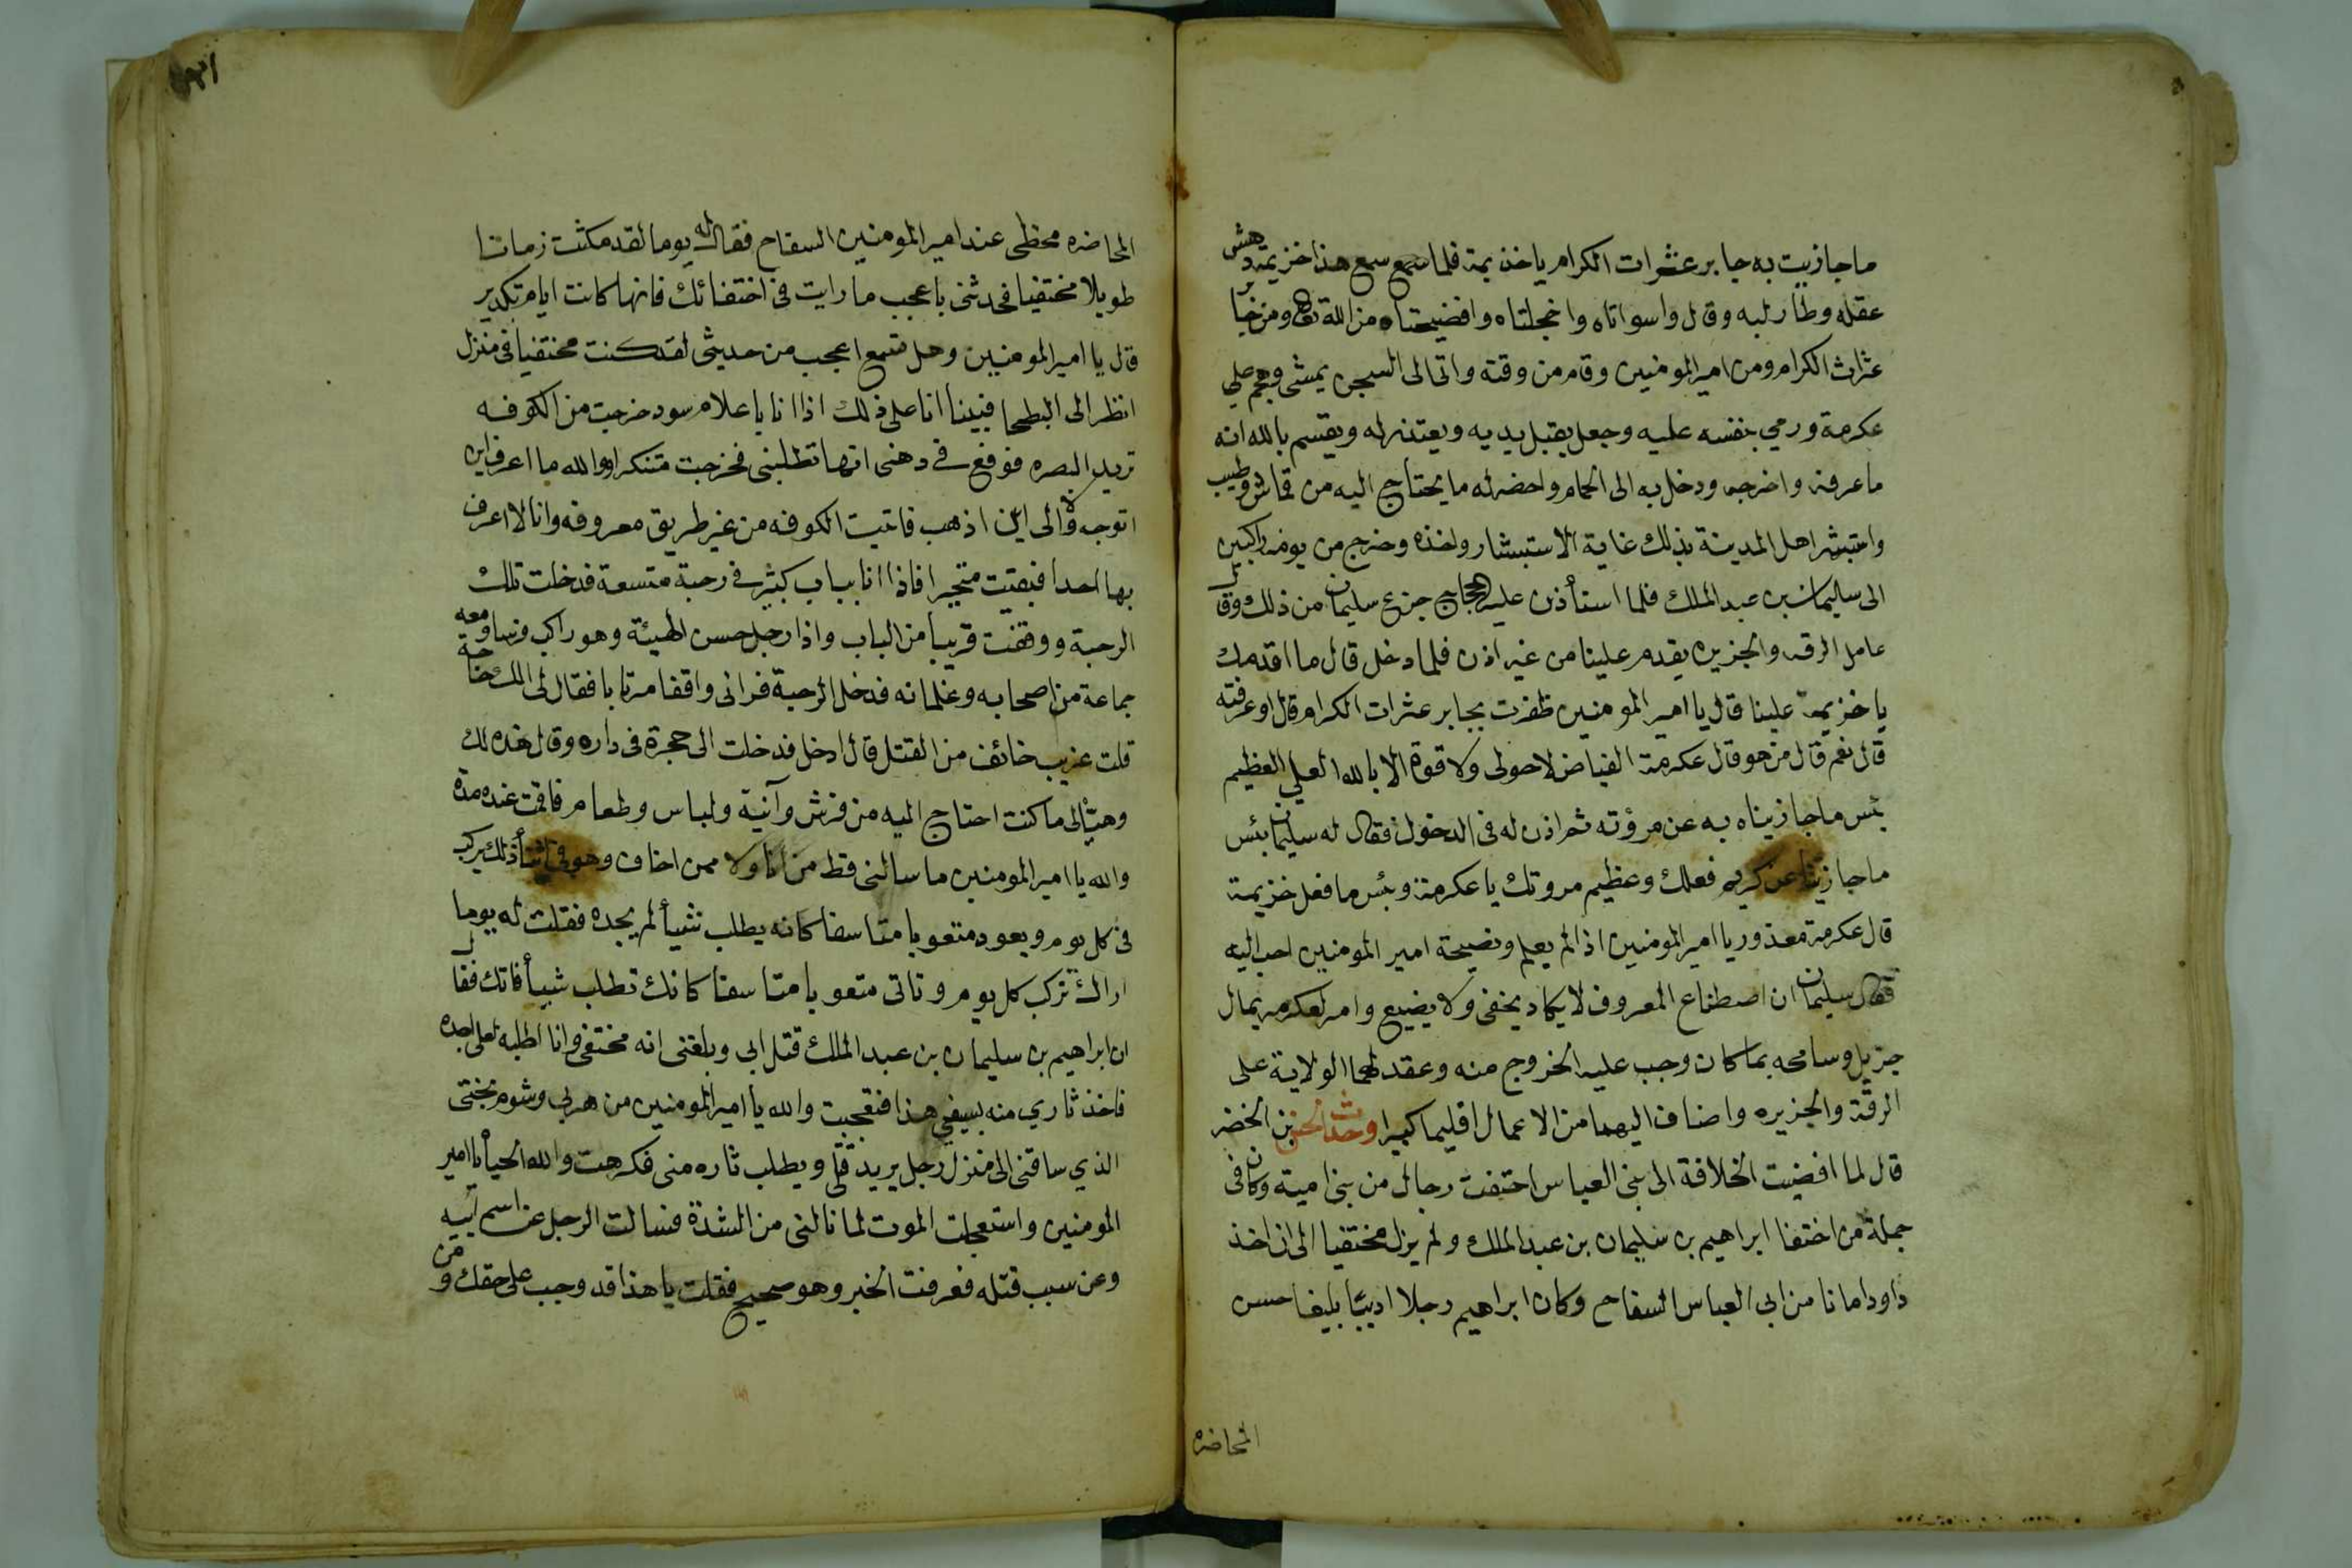 ما جازيت به جابر عثرات الكرام يا خذيمة فلما سمع سمع هذا خزيمة دهش
عقله وطار لبه وقال واسواتاه واخجلتاه وافضيحتاه من الله تعالى ومن جابر
عثرات الكرام ومن امير المومنين وقام من وقته واتى الى السجن يمشى وهجم على
عكرمة ورمي بنفسه عليه وجعل يقبل يديه ويعتذر له ويقسم بالله انه
ما عرفه واخرجه ودخل به الى الحمام واحضر له ما يحتاج اليه من قماش وطيب
واستبشر اهل المدينة بذلك غاية الاستبشار واخذه وخرج من يومه راكبين
الى سليمان بن عبد الملك فلما استأذن عليه الحجاج جزع سليمان من ذلك وقال
عامل الرقه والجزيره يقدم علينا من غير اذن فلما دخل قال ما اقدمك
يا خزيمة علينا قال يا امير المومنين ظفرت بجابر عثرات الكرام قال اوعرفته
قال نعم قال من هو قال عكرمة الفياض لا حول ولا قوة الا بالله العلي العظيم
بئس ما جازيناه به عن مرؤته ثم اذن له فى الدخول فقال له سليمان بئس
ما جازيتنا عن كريم فعلك وعظيم مروتك يا عكرمة وبئس ما فعل خزيمة
قال عكرمة معذور يا امير المومنين اذا لم يعلم ونصيحة امير المومنين احب اليه
فقال سليمان ان اصطناع المعروف لا يكاد يخفى ولا يضيع وامر لعكرمه بمال
جزيل وسامحه بما كان وجب عليه الخروج منه وعقد لهما الولاية على
الرقة والجزيره واضاف اليهما من الاعمال اقليما كبيرا وحدث الحسن بن الخضر
قال لما افضيت الخلافة الى بنى العباس اختفت رجال من بنى امية وكان فى
جملة من اختفا ابراهيم بن سليمان بن عبد الملك ولم يزل مختفيا الى ان اخذ
داود امانا من ابى العباس السفاح وكان ابراهيم رجلا اديبا بليغا حسن
المحاضره
المحاضره محظى عند امير المومنين السفاح فقال له يوما لقد مكثت زمانا
طويلا مختفيا فحدثنى باعجب ما رايت فى اختفائك فانها كانت ايام تكدير
قال يا امير المومنين وهل تسمع اعجب من حديثى لقد كنت مختفيا فى منزل
انظر الى البطحا فبينا انا على ذلك اذا انا باعلام سود خرجت من الكوفه
تريد البصره فوقع فى ذهنى انها تطلبنى فخرجت متنكرا والله ما اعرف اين
اتوجه ولا الى اين اذهب فاتيت الكوفه من غير طريق معروفه وانا لا اعرف
بها احدا فبقيت متحيرا فاذا انا بباب كبير فى رحبة متسعة فدخلت تلك
الرحبة ووقفت قريبا من الباب واذا رجل حسن الهيئة وهو راكب فرسا ومعه
جماعة من اصحابه وغلمانه فدخل الرحبة فرانى واقفا مرتابا فقال لى الك حاجة
قلت غريب خائف من القتل قال ادخل فدخلت الى حجرة فى داره وقال هذه لك
وهيأ لى ما كنت احتاج اليه من فرش وآنية ولباس وطعام فاقمت عنده مدة
والله يا امير المومنين ما سالنى قط من انا ولا ممن اخاف وهو فى اثنأ ذلك يركب
فى كل يوم ويعود متعوبا متاسفا كانه يطلب شيأ لم يجده فقلت له يوما
اراك تركب كل يوم وتاتى متعوبا متاسفا كانك تطلب شيأ فاتك فقال
ان ابراهيم بن سليمان بن عبد الملك قتل ابى وبلغنى انه مختفى وانا اطلبه لعلى اجده
فاخذ ثاري منه بسيفي هذا فتعجبت والله يا امير المومنين من هربي وشوم بختى
الذي ساقنى الى منزل رجل يريد قتلى ويطلب ثاره منى فكرهت والله الحياة يا امير
المومنين واستعجلت الموت لما نالنى من الشدة فسالت الرجل عن اسم ابيه
وعن سبب قتله فعرفت الخبر وهو صحيح فقلت يا هذا قد وجب على حقك ومن